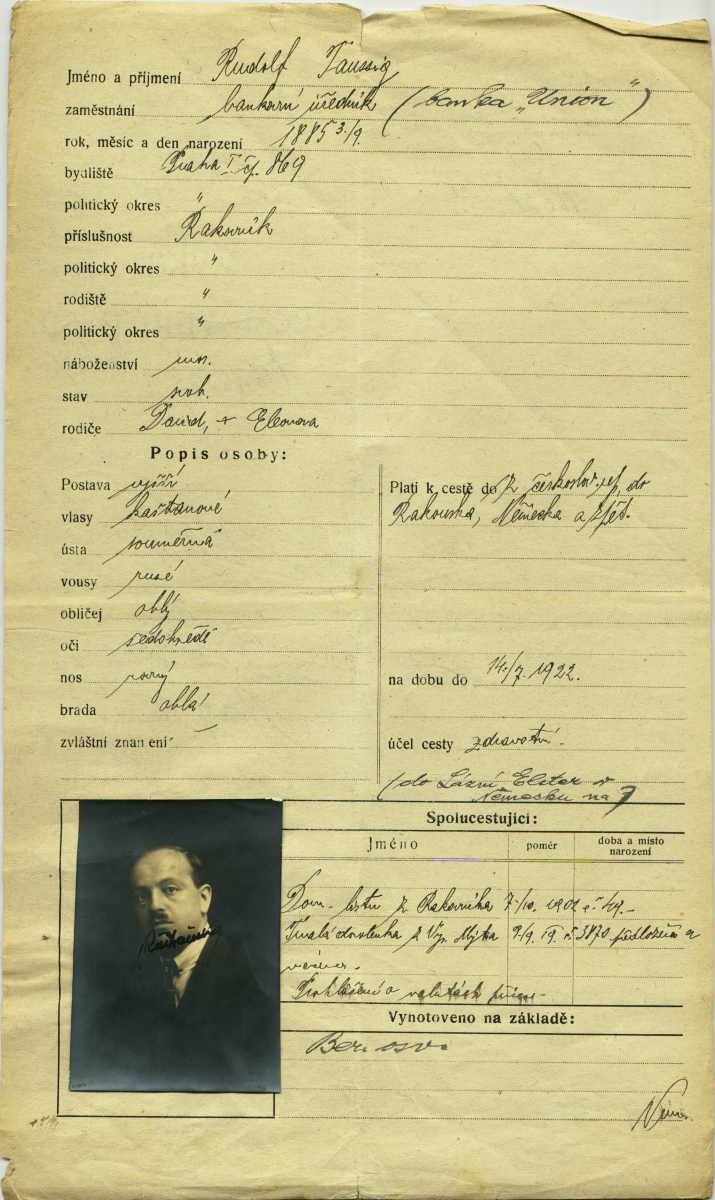 Jméno a příjmení Rudolf Taussig
zaměstnání bankovní úředník (banka „Union")
rok, měsíc a den narození 1885 3./9.
bydliště Praha I čp.
politický okres "
příslušnost Rakovník
politický okres "
rodiště "
politický okres "
náboženství
stav svob.
rodiče David, + Eleonora
Popis osoby:
Postava vyšší
vlasy kaštanové
ústa souměrná
vousy rusé
obličej oblý
oči šedohnědé
nos rovný
brada oblá
zvláštní znamení –
Platí k cestě do z českoslov. rep. do
Rakouska, Německa a zpět.
na dobu do 14./7. 1922.
účel cesty zdravotní.
(do Lázní Elster v
Německu na
Spolucestující:
Jméno poměr doba a místo narození
Dom. listu z Rakovníka 7./10. 1902 č.
z Vys. Mýta 9./9. 19. č. 3870 předložena a
Prohlášení o valutách
Vynotoveno na základě:
Ber. osv.